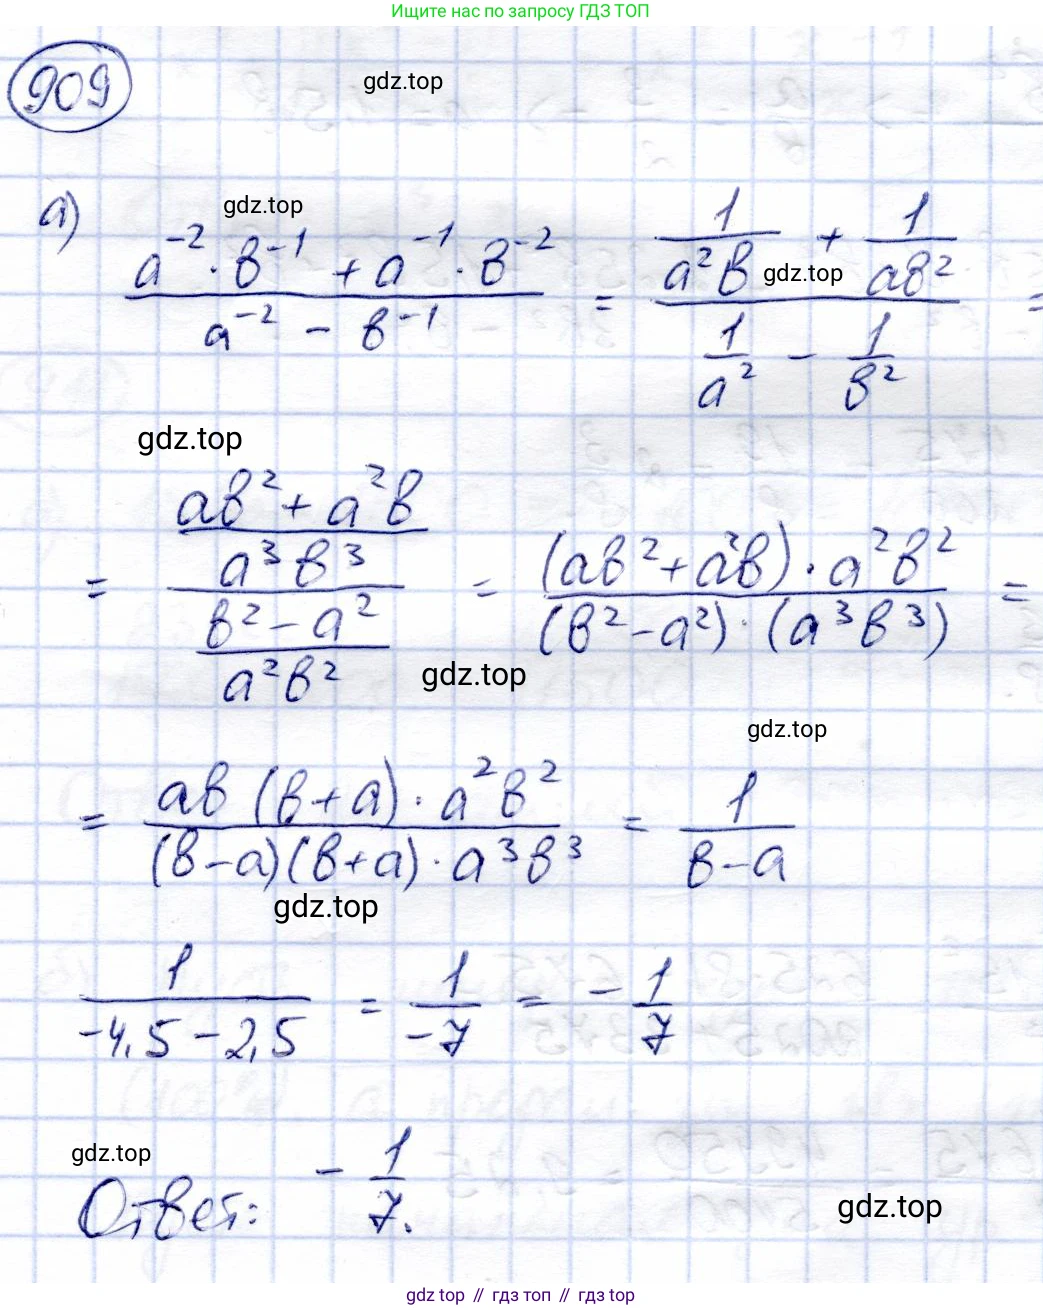 Ищите нас по запросу ГДЗ ТОП
909
gdz.top
а) (a⁻² · b⁻¹ + a⁻¹ · b⁻²) / (a⁻² − b⁻¹) = (1/(a²b) + 1/(ab²)) / (1/a² − 1/b²) =
gdz.top
gdz.top
gdz.top
= ((ab² + a²b) / (a³b³)) / ((b² − a²) / (a²b²)) = ((ab² + a²b) · a²b²) / ((b² − a²) · (a³b³)) =
gdz.top
gdz.top
= (ab (b + a) · a²b²) / ((b − a)(b + a) · a³b³) = 1 / (b − a)
gdz.top
1 / (−4,5 − 2,5) = 1 / −7 = − 1/7
gdz.top
Ответ: − 1/7.
gdz.top
gdz top // гдз топ // гдз top